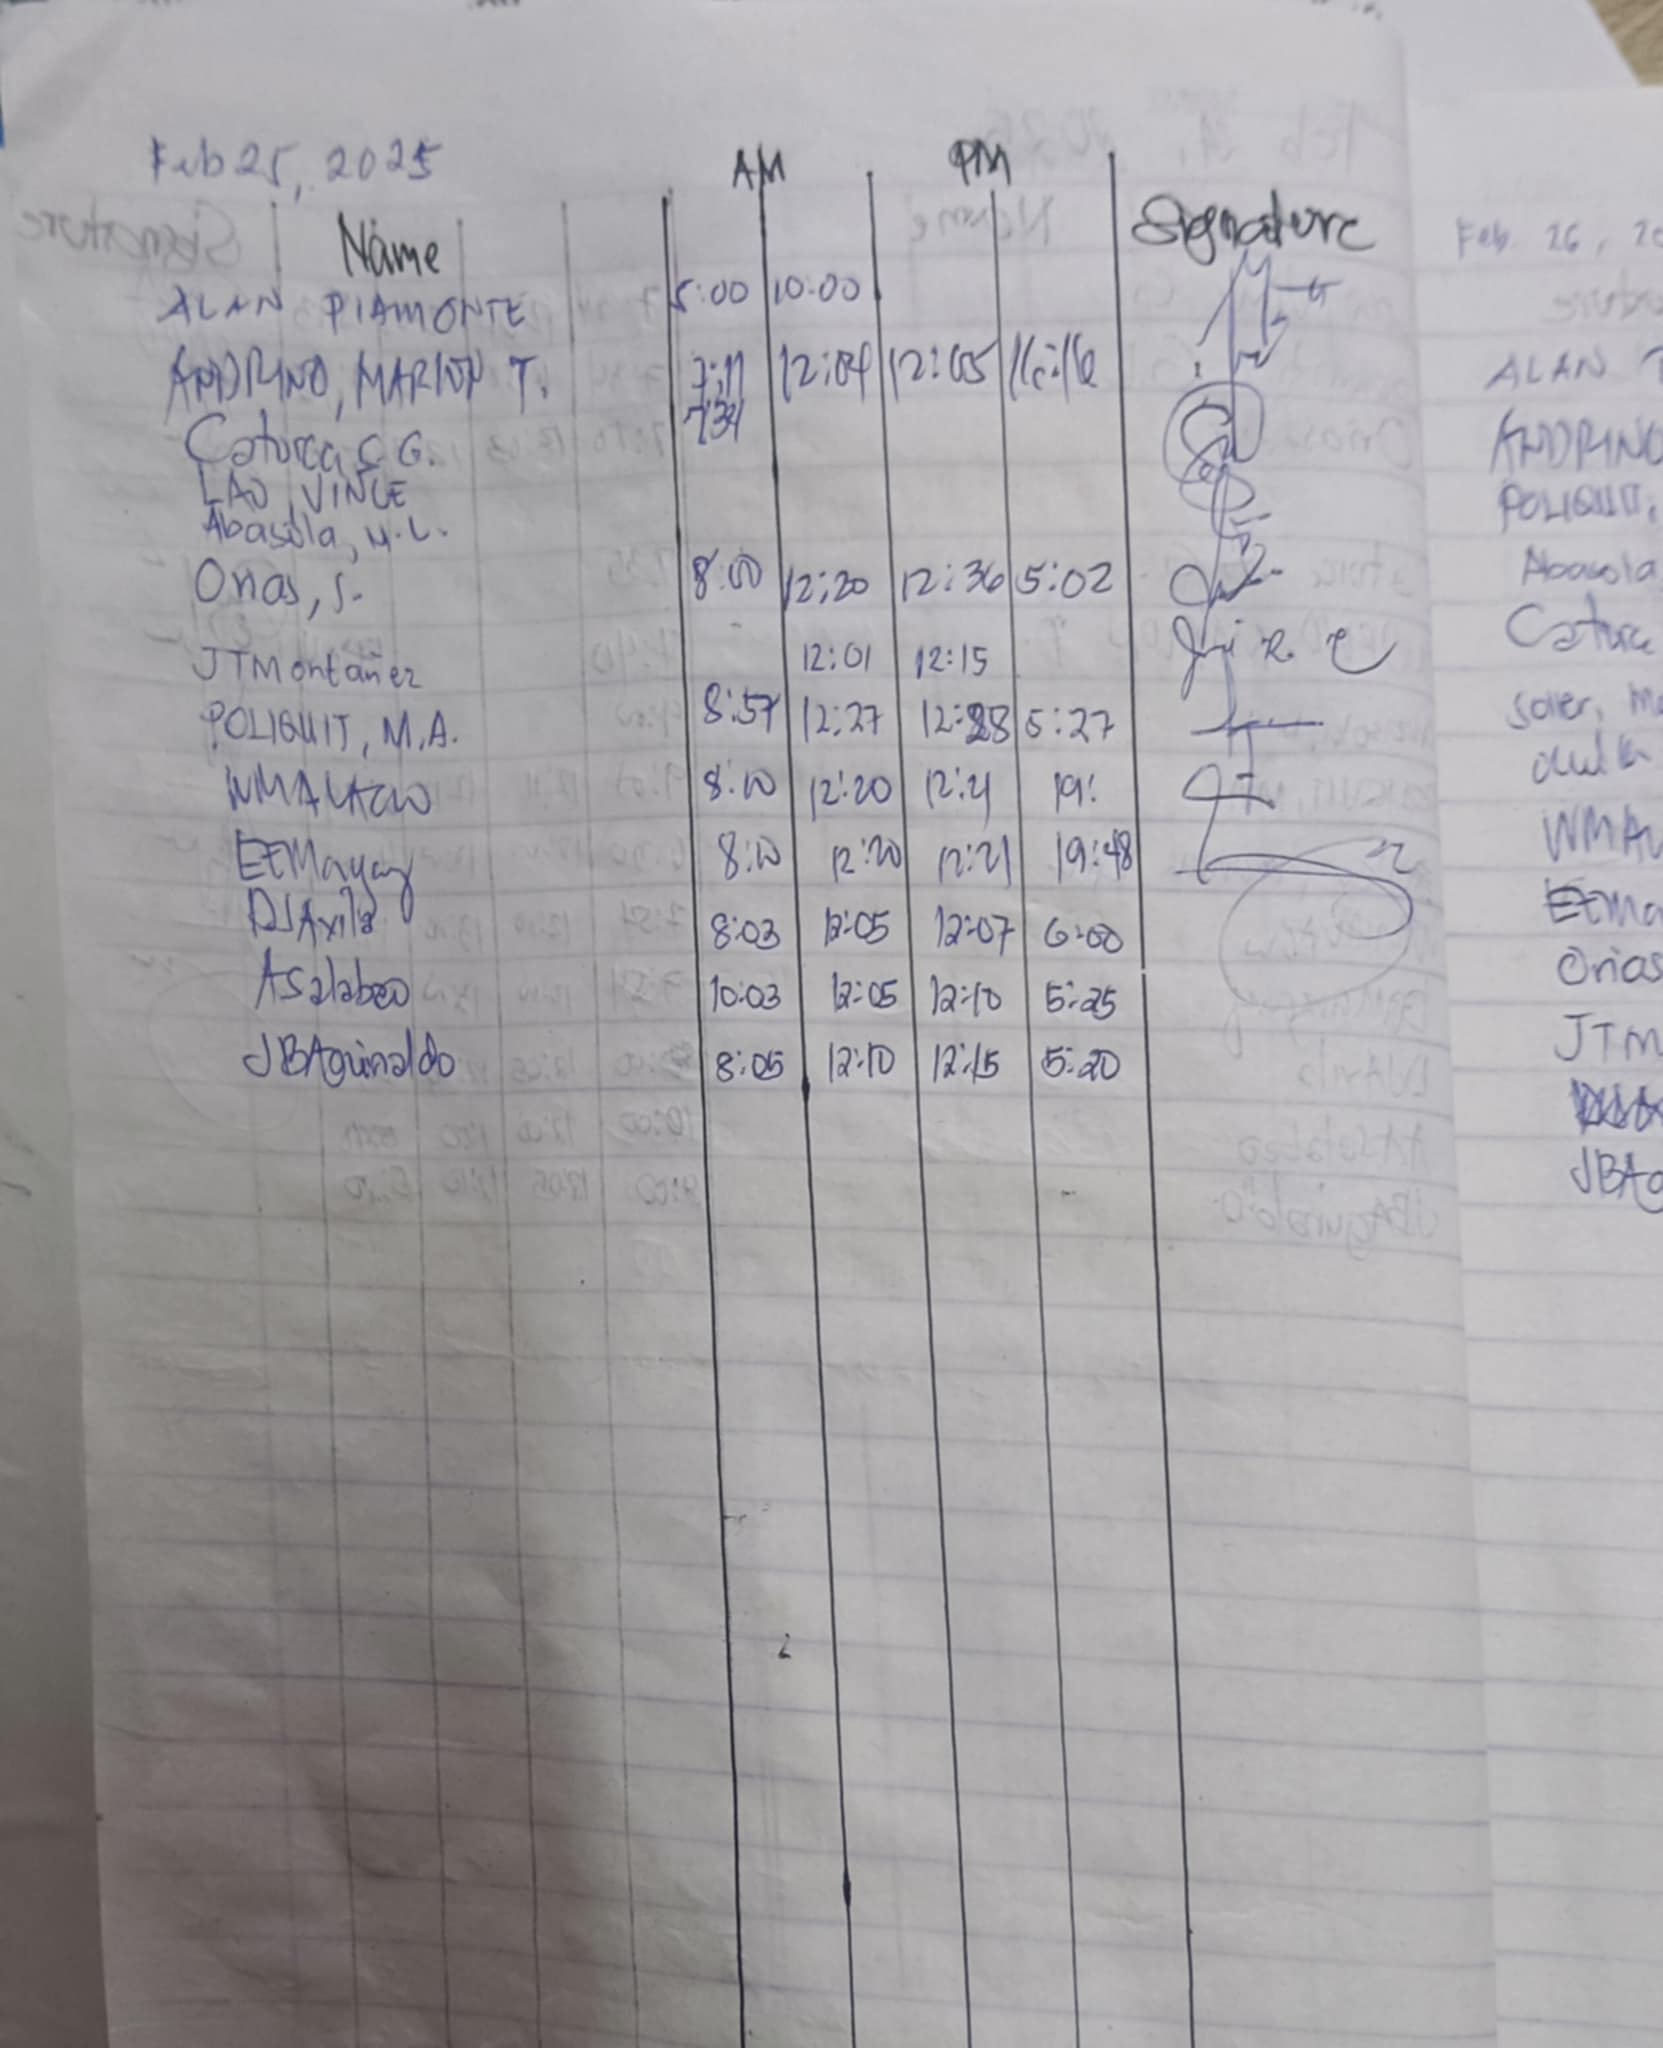 Feb 25, 2025
AM PM
Name Signature
ALAN PIAMONTE 5:00 10:00
ANDRINO, MARION T. 7:11 12:04 12:05 16:16
Caturca, C G. 7:34
LAO, VINCE
Abasola, M.L.
Orias, S. 8:00 12:20 12:36 5:02
JTMontañez 12:01 12:15
POLIQUIT, M.A. 8:57 12:27 12:28 5:27
WMALACIO 8:10 12:20 12:21 19:
EEMayay 8:10 12:20 12:21 19:48
DJAvila 8:03 12:05 12:07 6:00
ASalabao 10:03 12:05 12:10 5:25
JBAguinaldo 8:05 12:10 12:15 5:20
Feb. 26, 20
ALAN
ANDRINO
POLIQUIT,
Abasola
Caturca
Soler, Ma
WMAL
EEMa
Orias
JTM
JBAg